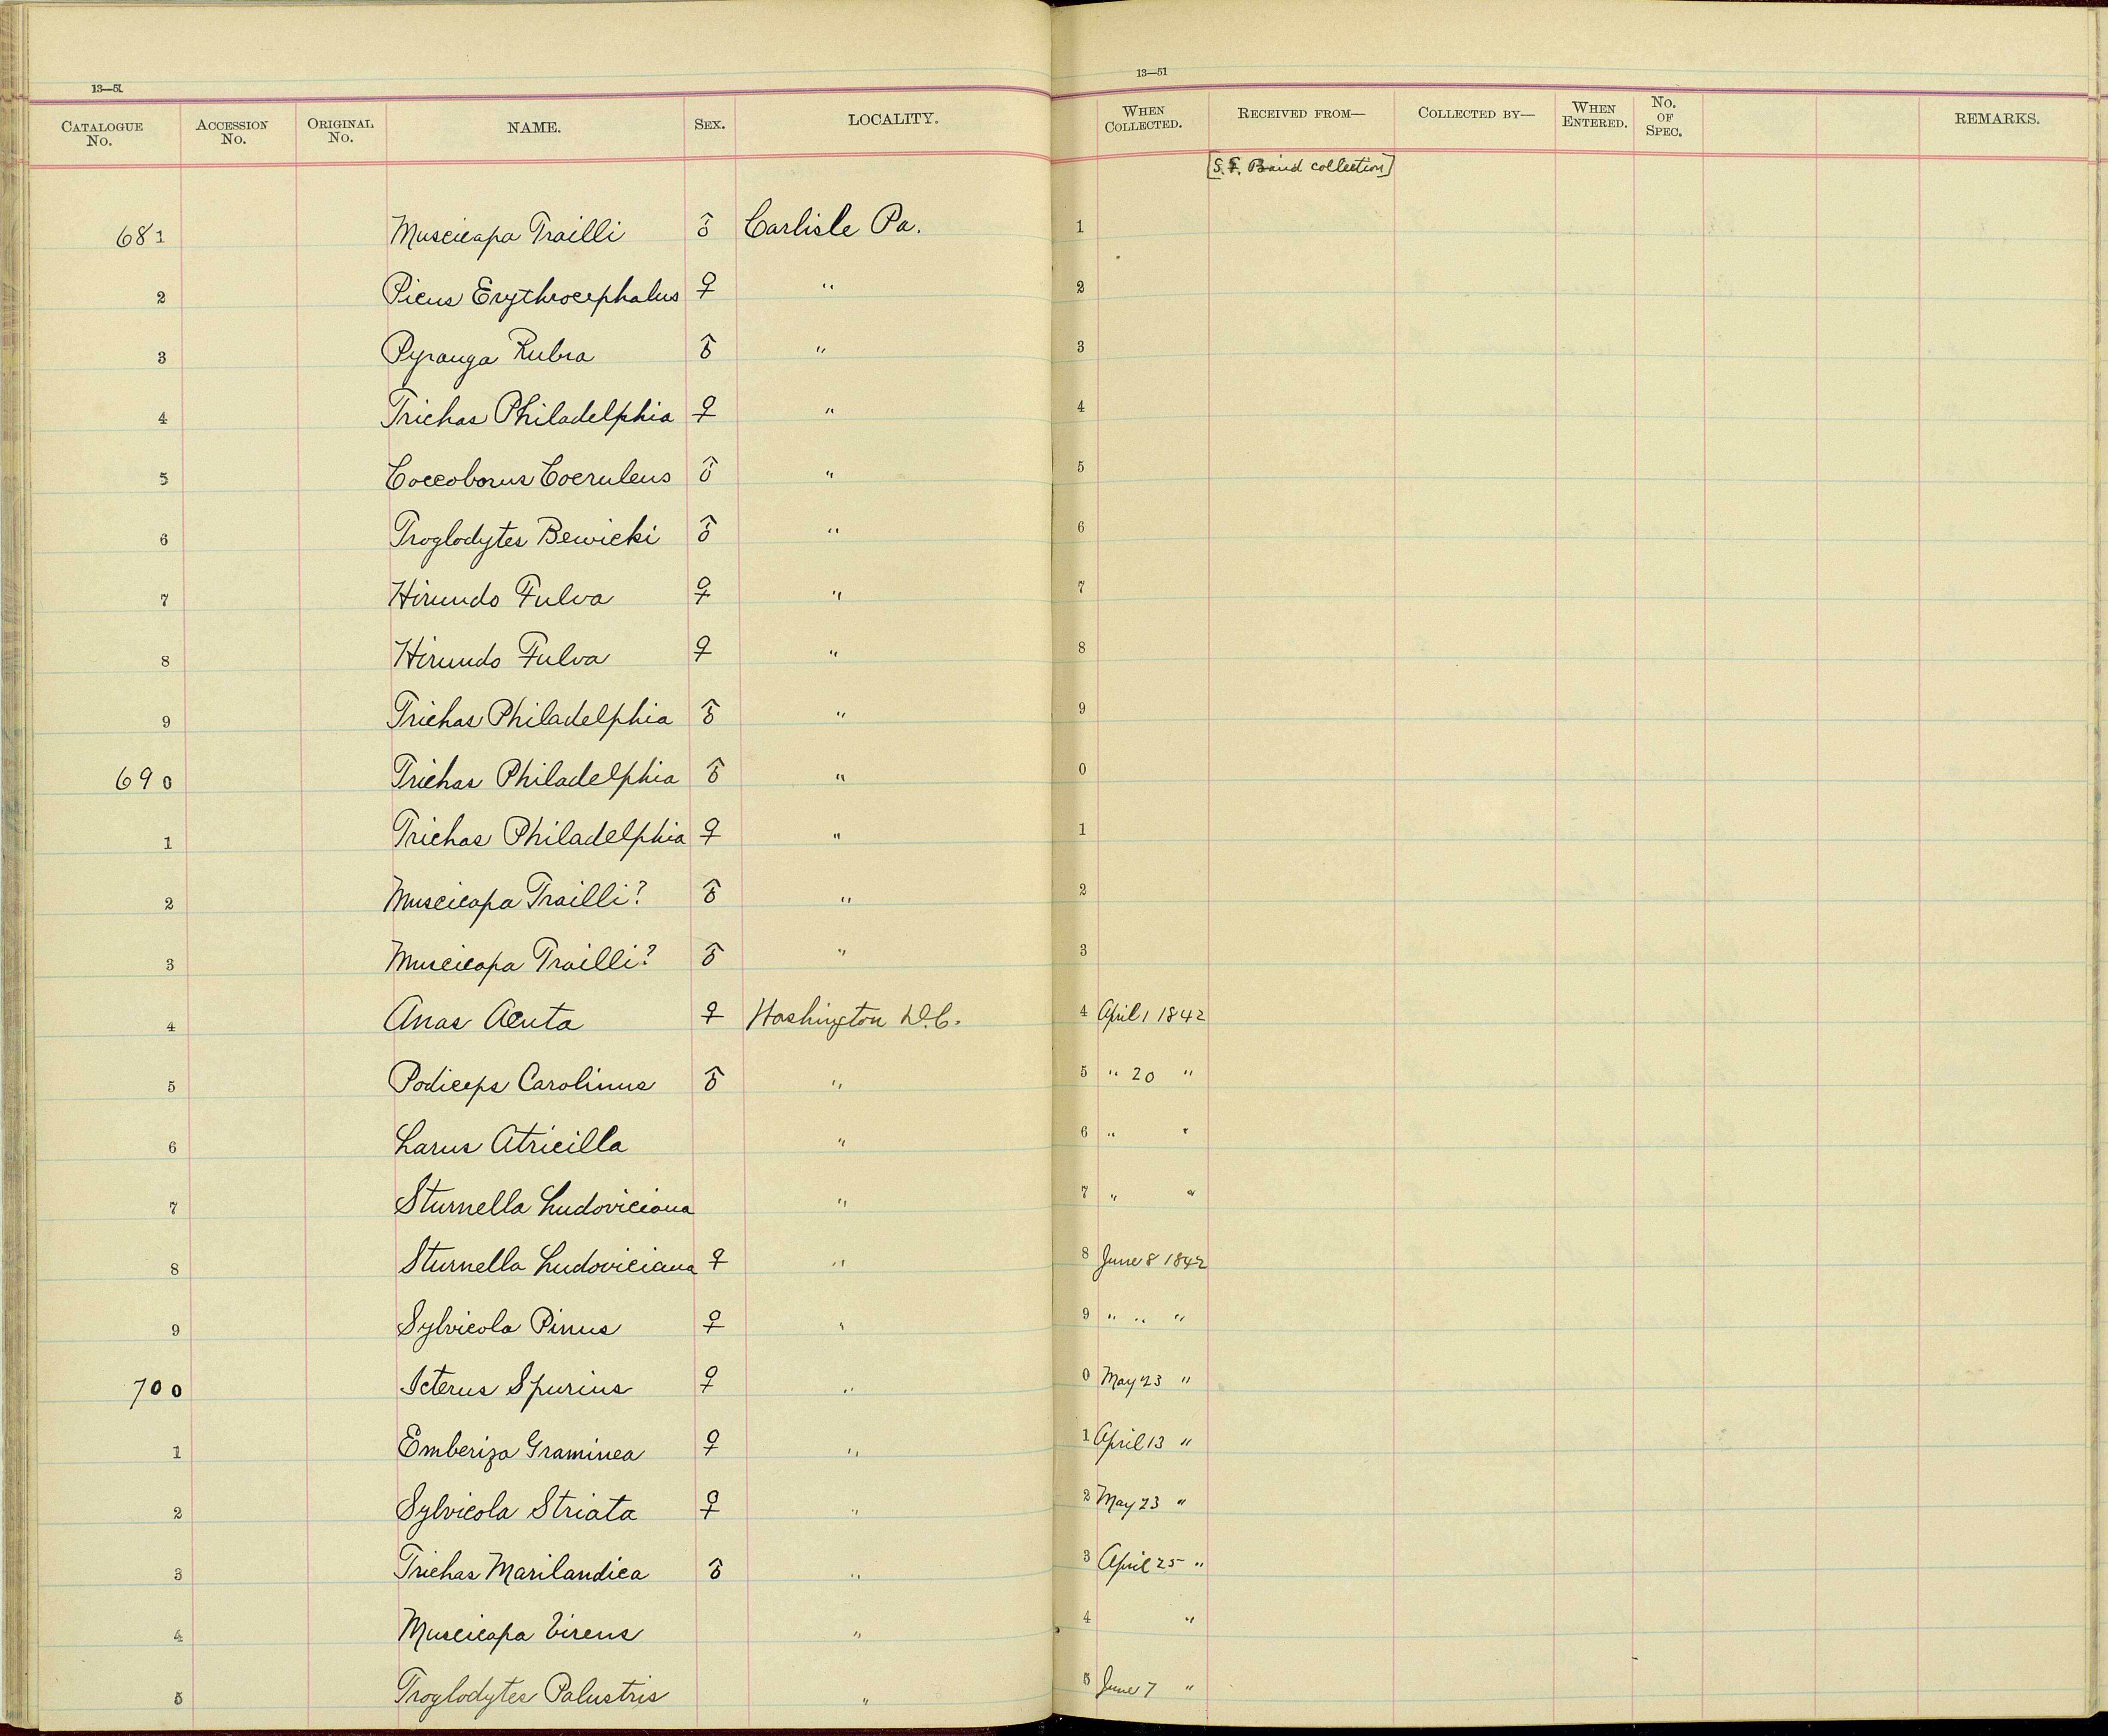 13—51 13—51
CATALOGUE No. ACCESSION No. ORIGINAL No. NAME. SEX. LOCALITY. WHEN COLLECTED. RECEIVED FROM— COLLECTED BY— WHEN ENTERED. No. OF SPEC. REMARKS.
[S. F. Baird collection]
681 Muscicapa Trailli ♂ Carlisle Pa. 1
2 Picus Erythrocephalus ♀ " 2
3 Pyranga Rubra ♂ " 3
4 Trichas Philadelphia ♀ " 4
5 Coccoborus Coeruleus ♂ " 5
6 Troglodytes Bewicki ♂ " 6
7 Hirundo Fulva ♀ " 7
8 Hirundo Fulva ♀ " 8
9 Trichas Philadelphia ♂ " 9
690 Trichas Philadelphia ♂ " 0
1 Trichas Philadelphia ♀ " 1
2 Muscicapa Trailli? ♂ " 2
3 Muscicapa Trailli? ♂ " 3
4 Anas Acuta ♀ Washington D.C. 4 April 1 1842
5 Podiceps Carolinus ♂ " 5 " 20 "
6 Larus Atricilla " 6 " "
7 Sturnella Ludoviciana " 7 " "
8 Sturnella Ludoviciana ♀ " 8 June 8 1842
9 Sylvicola Pinus ♀ " 9 " " "
700 Icterus Spurius ♀ " 0 May 23 "
1 Emberiza Graminea ♀ " 1 April 13 "
2 Sylvicola Striata ♀ " 2 May 23 "
3 Trichas Marilandica ♂ " 3 April 25 "
4 Muscicapa Virens " 4 "
5 Troglodytes Palustris " 5 June 7 "